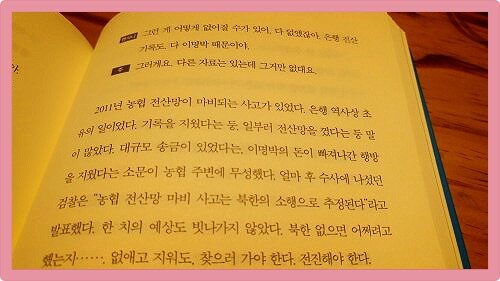 그런 게 어떻게 없어질 수가 있어. 다 없앴잖아. 은행 전산
기록도. 다 이명박 때문이야.
주 그러게요. 다른 자료는 있는데 그거만 없대요.
2011년 농협 전산망이 마비되는 사고가 있었다. 은행 역사상 초
유의 일이었다. 기록을 지웠다는 둥, 일부러 전산망을 껐다는 둥 말
이 많았다. 대규모 송금이 있었다는, 이명박의 돈이 빠져나간 행방
을 지웠다는 소문이 농협 주변에 무성했다. 얼마 후 수사에 나섰던
검찰은 "농협 전산망 마비 사고는 북한의 소행으로 추정된다"라고
발표했다. 한 치의 예상도 빗나가지 않았다. 북한 없으면 어쩌려고
했는지……. 없애고 지워도, 찾으러 가야 한다. 전진해야 한다.